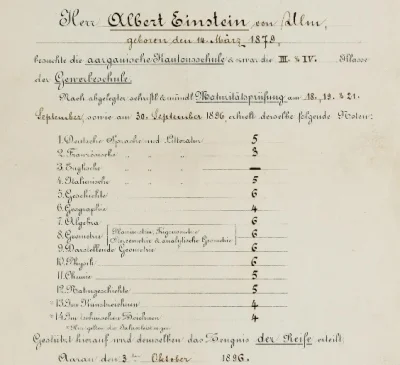 Herr Albert Einstein von Ulm,
geboren den 14. März 1879,
besuchte die aargauische Kantonsschule & zwar die III. & IV. Klasse
der Gewerbeschule.
Nach abgelegter schriftl. & mündl. Maturitätsprüfung am 18., 19. & 21.
September, sowie am 30. September 1896, erhielt derselbe folgende Noten:
1. Deutsche Sprache und Litteratur 5
2. Französische " " " 3
3. Englische " " " —
4. Italienische " " " 5
5. Geschichte 6
6. Geographie 4
7. Algebra 6
8. Geometrie (Planimetrie, Trigonometrie Stereometrie & analytische Geometrie) 6
9. Darstellende Geometrie 6
10. Physik 6
11. Chemie 5
12. Naturgeschichte 5
* 13. Im Kunstzeichnen 4
* 14. Im technischen Zeichnen 4
* Hier gelten die Jahresleistungen.
Gestützt hierauf wird demselben das Zeugnis der Reife erteilt.
Aarau den 3ten Oktober 1896.